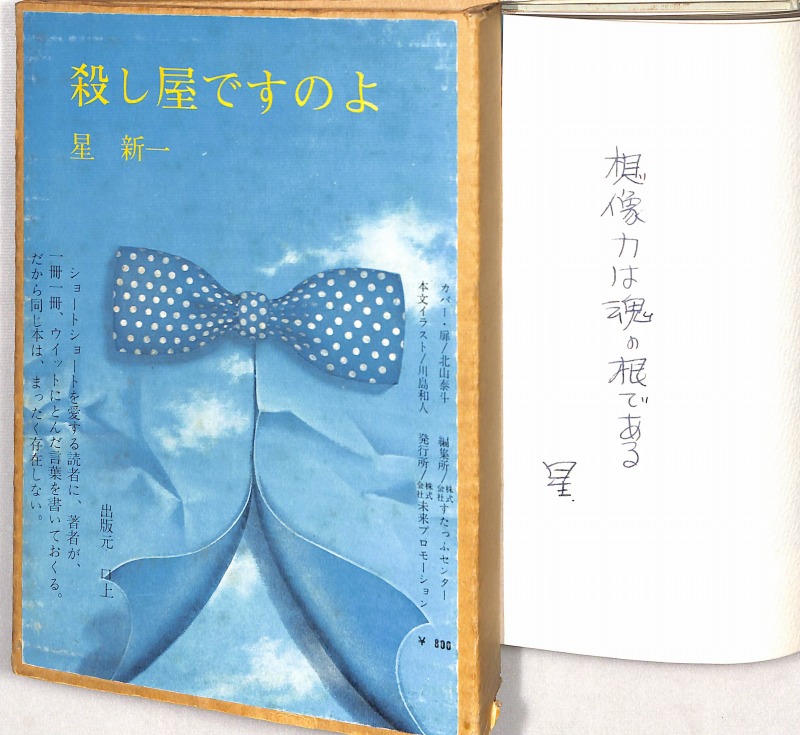 殺し屋ですのよ
星 新一
カバー・扉/北山泰斗
本文イラスト/川島和人
編集所/株式会社すたっふセンター
発行所/株式会社未来プロモーション
¥ 800
ショートショートを愛する読者に、著者が、
一冊一冊、ウイットにとんだ言葉を書いておくる。
だから同じ本は、まったく存在しない。
出版元 口上
想像力は魂の根である
星